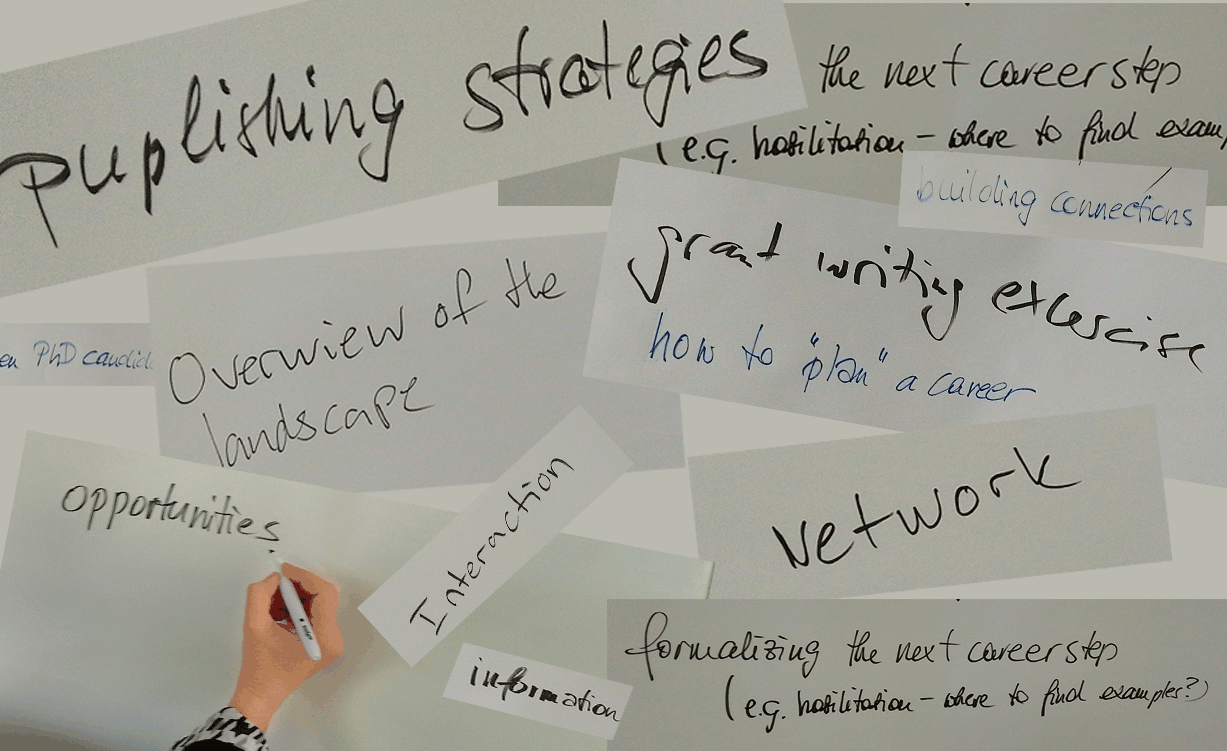 puplishing strategies
the next career step
(e.g. habilitation – where to find exam
building connections
grant writing excercise
how to "plan" a career
Overwiew of the
landscape
en PhD candid
opportunities
Interaction
Network
information
formalizing the next career step
(e.g. habilitation – where to find examples?)